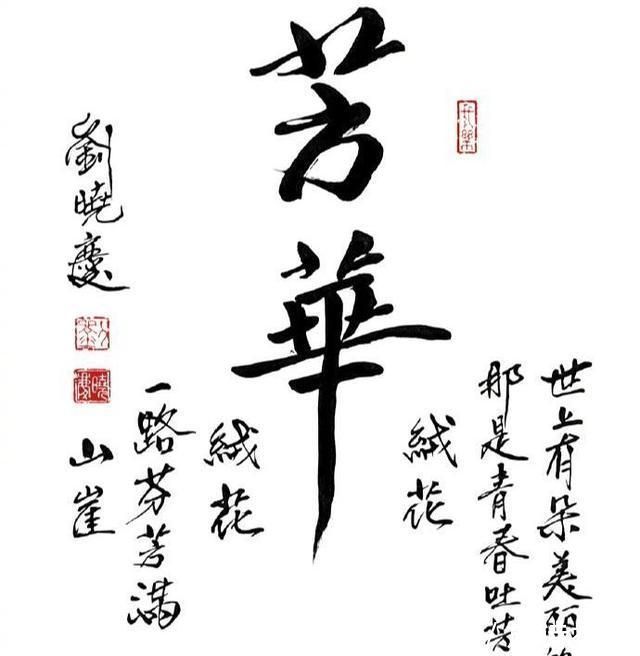 芳華
世上有朵美丽的
那是青春吐芳
絨花
絨花
一路芬芳满
山崖
劉曉慶